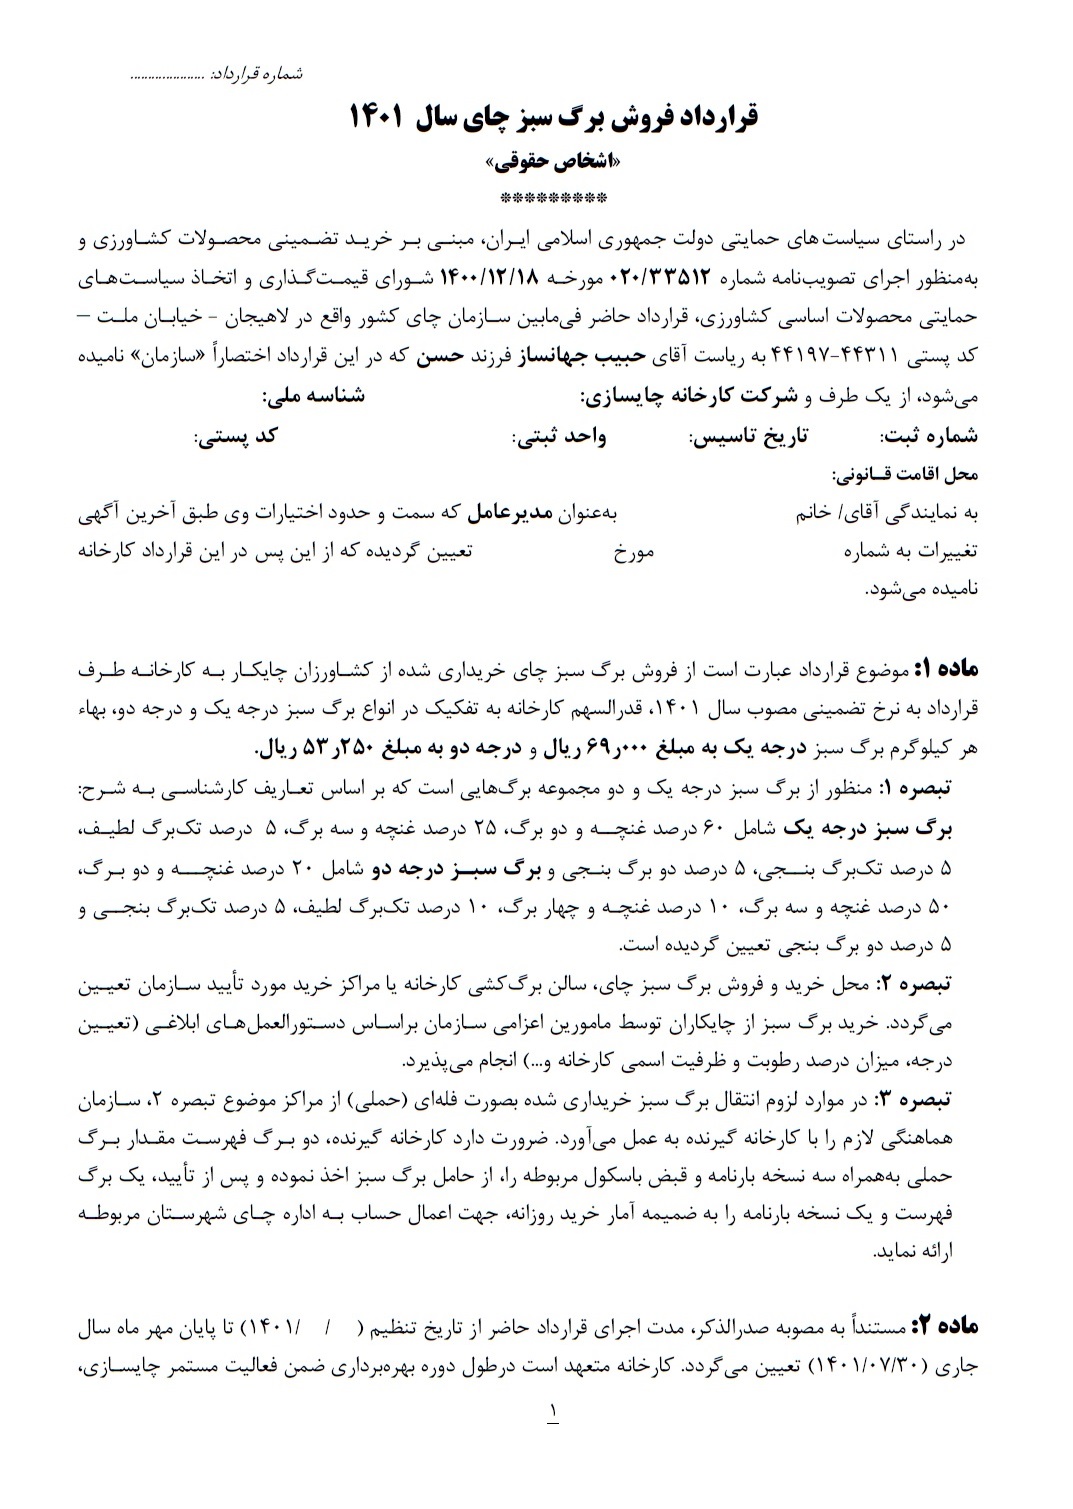 شماره قرارداد: .....................
قرارداد فروش برگ سبز چای سال ۱۴۰۱
«اشخاص حقوقی»
*********
در راستای سیاست‌های حمایتی دولت جمهوری اسلامی ایران، مبنی بر خرید تضمینی محصولات کشاورزی و
به‌منظور اجرای تصویب‌نامه شماره ۰۲۰/۳۳۵۱۲ مورخه ۱۴۰۰/۱۲/۱۸ شورای قیمت‌گذاری و اتخاذ سیاست‌های
حمایتی محصولات اساسی کشاورزی، قرارداد حاضر فی‌مابین سازمان چای کشور واقع در لاهیجان - خیابان ملت –
کد پستی ۴۴۳۱۱-۴۴۱۹۷ به ریاست آقای حبیب جهانساز فرزند حسن که در این قرارداد اختصاراً «سازمان» نامیده
می‌شود، از یک طرف و شرکت کارخانه چایسازی: شناسه ملی:
شماره ثبت: تاریخ تاسیس: واحد ثبتی: کد پستی:
محل اقامت قانونی:
به نمایندگی آقای/ خانم به‌عنوان مدیرعامل که سمت و حدود اختیارات وی طبق آخرین آگهی
تغییرات به شماره مورخ تعیین گردیده که از این پس در این قرارداد کارخانه
نامیده می‌شود.
ماده ۱: موضوع قرارداد عبارت است از فروش برگ سبز چای خریداری شده از کشاورزان چایکار به کارخانه طرف
قرارداد به نرخ تضمینی مصوب سال ۱۴۰۱، قدرالسهم کارخانه به تفکیک در انواع برگ سبز درجه یک و درجه دو، بهاء
هر کیلوگرم برگ سبز درجه یک به مبلغ ۶۹ر۰۰۰ ریال و درجه دو به مبلغ ۵۳ر۲۵۰ ریال.
تبصره ۱: منظور از برگ سبز درجه یک و دو مجموعه برگ‌هایی است که بر اساس تعاریف کارشناسی به شرح:
برگ سبز درجه یک شامل ۶۰ درصد غنچه و دو برگ، ۲۵ درصد غنچه و سه برگ، ۵ درصد تک‌برگ لطیف،
۵ درصد تک‌برگ بنجی، ۵ درصد دو برگ بنجی و برگ سبز درجه دو شامل ۲۰ درصد غنچه و دو برگ،
۵۰ درصد غنچه و سه برگ، ۱۰ درصد غنچه و چهار برگ، ۱۰ درصد تک‌برگ لطیف، ۵ درصد تک‌برگ بنجی و
۵ درصد دو برگ بنجی تعیین گردیده است.
تبصره ۲: محل خرید و فروش برگ سبز چای، سالن برگ‌کشی کارخانه یا مراکز خرید مورد تأیید سازمان تعیین
می‌گردد. خرید برگ سبز از چایکاران توسط مامورین اعزامی سازمان براساس دستورالعمل‌های ابلاغی (تعیین
درجه، میزان درصد رطوبت و ظرفیت اسمی کارخانه و...) انجام می‌پذیرد.
تبصره ۳: در موارد لزوم انتقال برگ سبز خریداری شده بصورت فله‌ای (حملی) از مراکز موضوع تبصره ۲، سازمان
هماهنگی لازم را با کارخانه گیرنده به عمل می‌آورد. ضرورت دارد کارخانه گیرنده، دو برگ فهرست مقدار برگ
حملی به‌همراه سه نسخه بارنامه و قبض باسکول مربوطه را، از حامل برگ سبز اخذ نموده و پس از تأیید، یک برگ
فهرست و یک نسخه بارنامه را به ضمیمه آمار خرید روزانه، جهت اعمال حساب به اداره چای شهرستان مربوطه
ارائه نماید.
ماده ۲: مستنداً به مصوبه صدرالذکر، مدت اجرای قرارداد حاضر از تاریخ تنظیم ( / /۱۴۰۱) تا پایان مهر ماه سال
جاری (۱۴۰۱/۰۷/۳۰) تعیین می‌گردد. کارخانه متعهد است درطول دوره بهره‌برداری ضمن فعالیت مستمر چایسازی،
۱